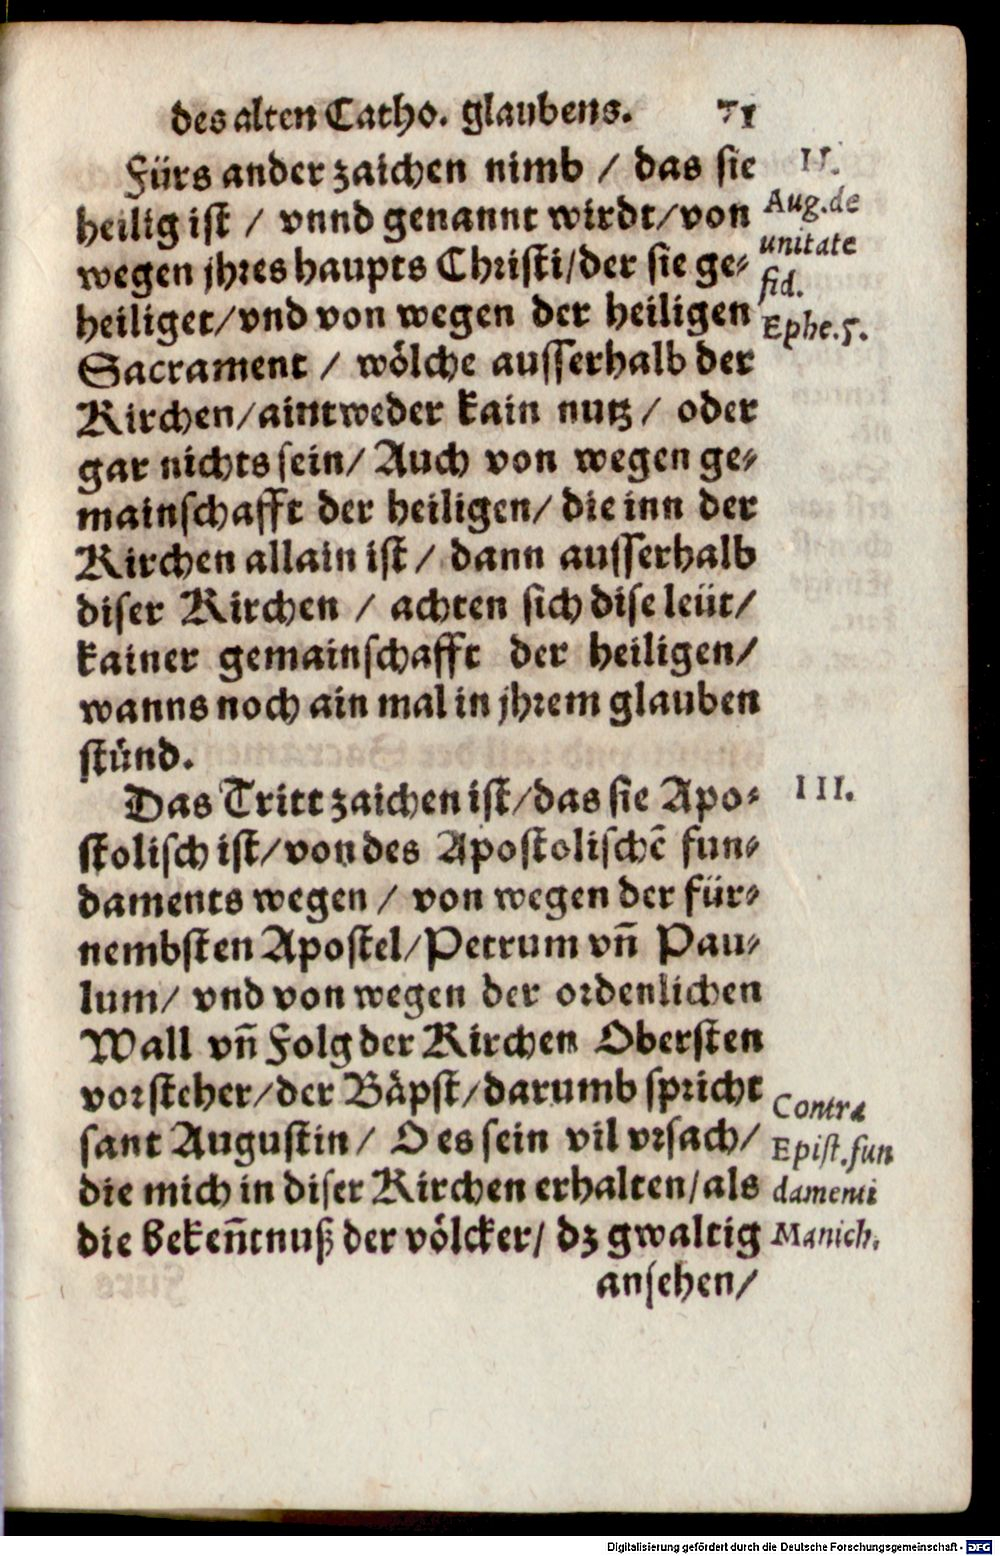 des alten Catho. glaubens. 71
Fürs ander zaichen nimb / das sie
heilig ist / vnnd genannt wirdt/von
wegen jhres haupts Christi/der sie ge-
heiliget/vnd von wegen der heiligen
Sacrament / wölche ausserhalb der
Kirchen/aintweder kain nutz/ oder
gar nichts sein/ Auch von wegen ge-
mainschafft der heiligen/ die inn der
Kirchen allain ist / dann ausserhalb
diser Kirchen / achten sich dise leüt/
kainer gemainschafft der heiligen/
wanns noch ain mal in jhrem glauben
stünd.
Das Tritt zaichen ist/das sie Apo-
stolisch ist/von des Apostolischẽ fun-
daments wegen / von wegen der für-
nembsten Apostel/Petrum vñ Pau-
lum/ vnd von wegen der ordenlichen
Wall vñ Folg der Kirchen Obersten
vorsteher/der Bäpst/darumb spricht
sant Augustin/ O es sein vil vrsach/
die mich in diser Kirchen erhalten/als
die bekeñtnuß der völcker/ dz gwaltig
ansehen/
II.
Aug.de
unitate
fid.
Ephe.5.
III.
Contra
Epist.fun
damenti
Manich.
Digitalisierung gefördert durch die Deutsche Forschungsgemeinschaft - DFG